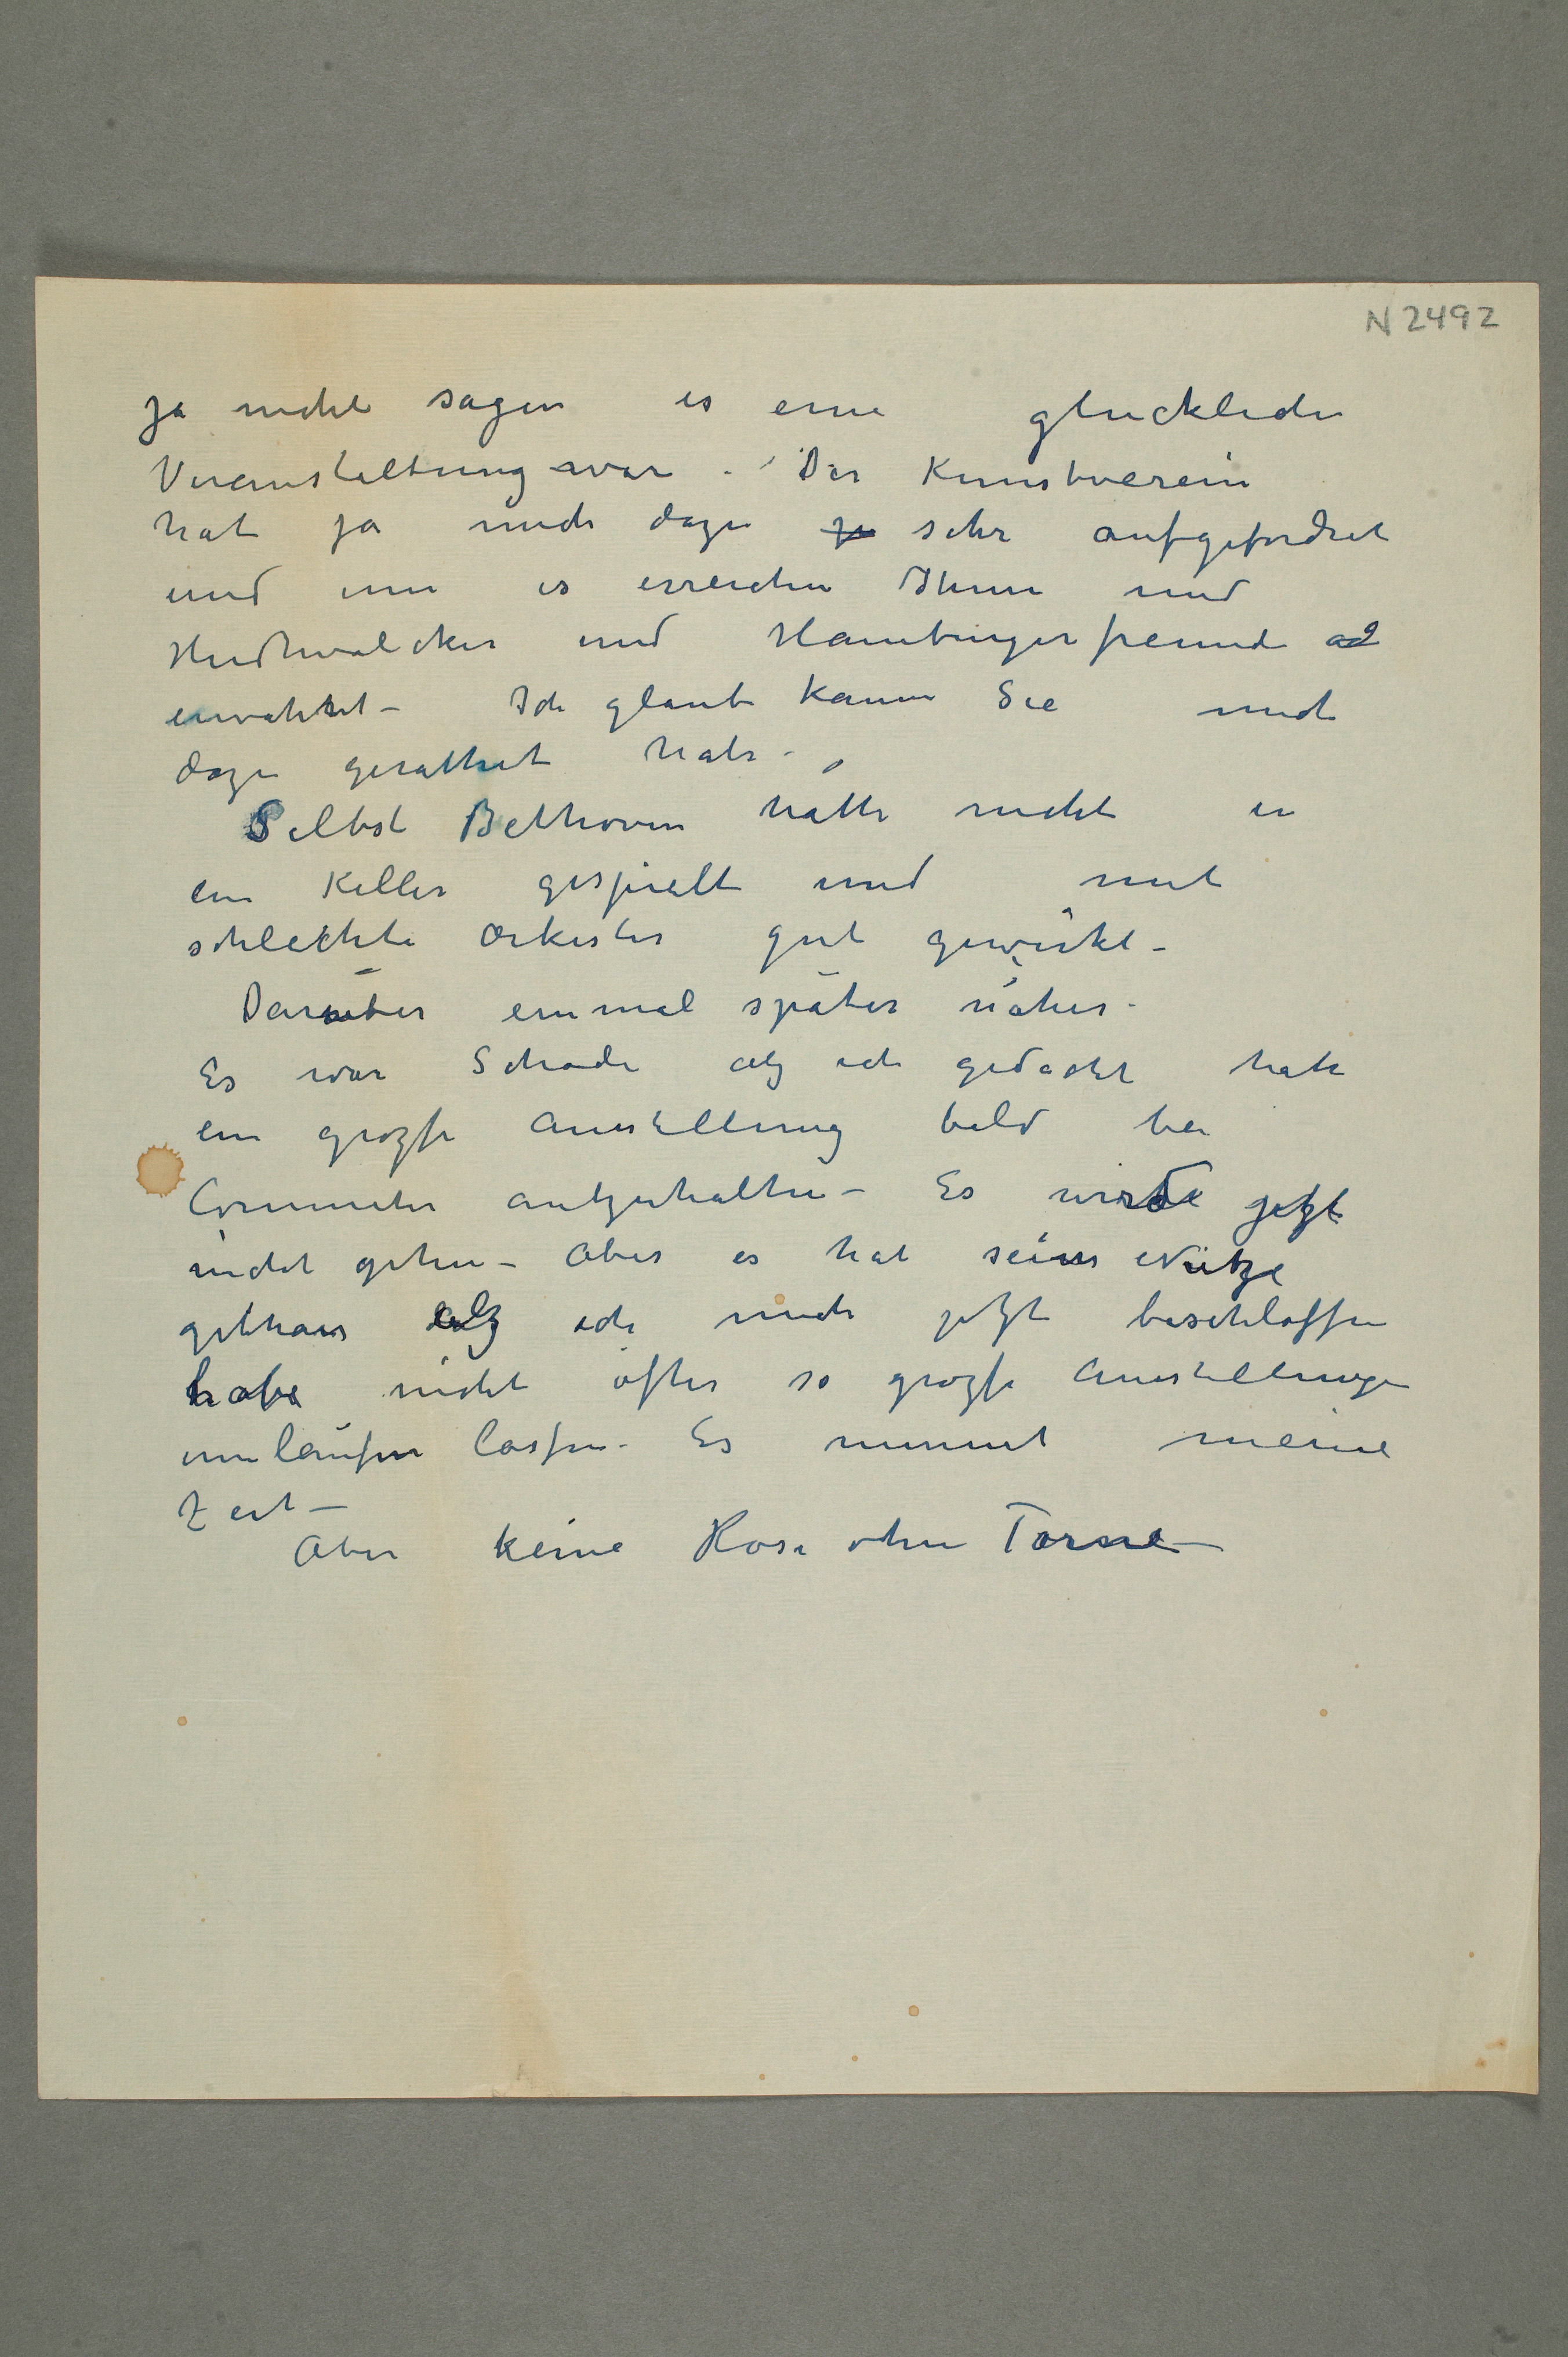 N 2492
ja nicht sagen es eine glückliche
Veranstaltung war. Der Kunstverein
hat ja mich dazu zu sehr aufgefordret
und um es erreichen Ihnen und
Hudtwalcker und Hamburgerfreunde
erwähnt – Ich glaube kaum Sie mich
dazu gerathet habe –
Selbst Bethoven hätte nicht in
ein Keller gespielt und mit
schlechte Orkester gut gewirkt –
Darüber einmal später näher –
Es war Schade als ich gedacht hate
ein grozse Ausstellung bald bei
Commeter antzuhalten – Es wirde jetzt
nicht gehen – Aber es hat seine Nütze
gethan alz ich mich jetzt beschlossen
habe nicht öfter so grozse Ausstellungen
umlaufen lassen – Es nimmt meine
Zeit –
Aber keine Rose ohne Torne –